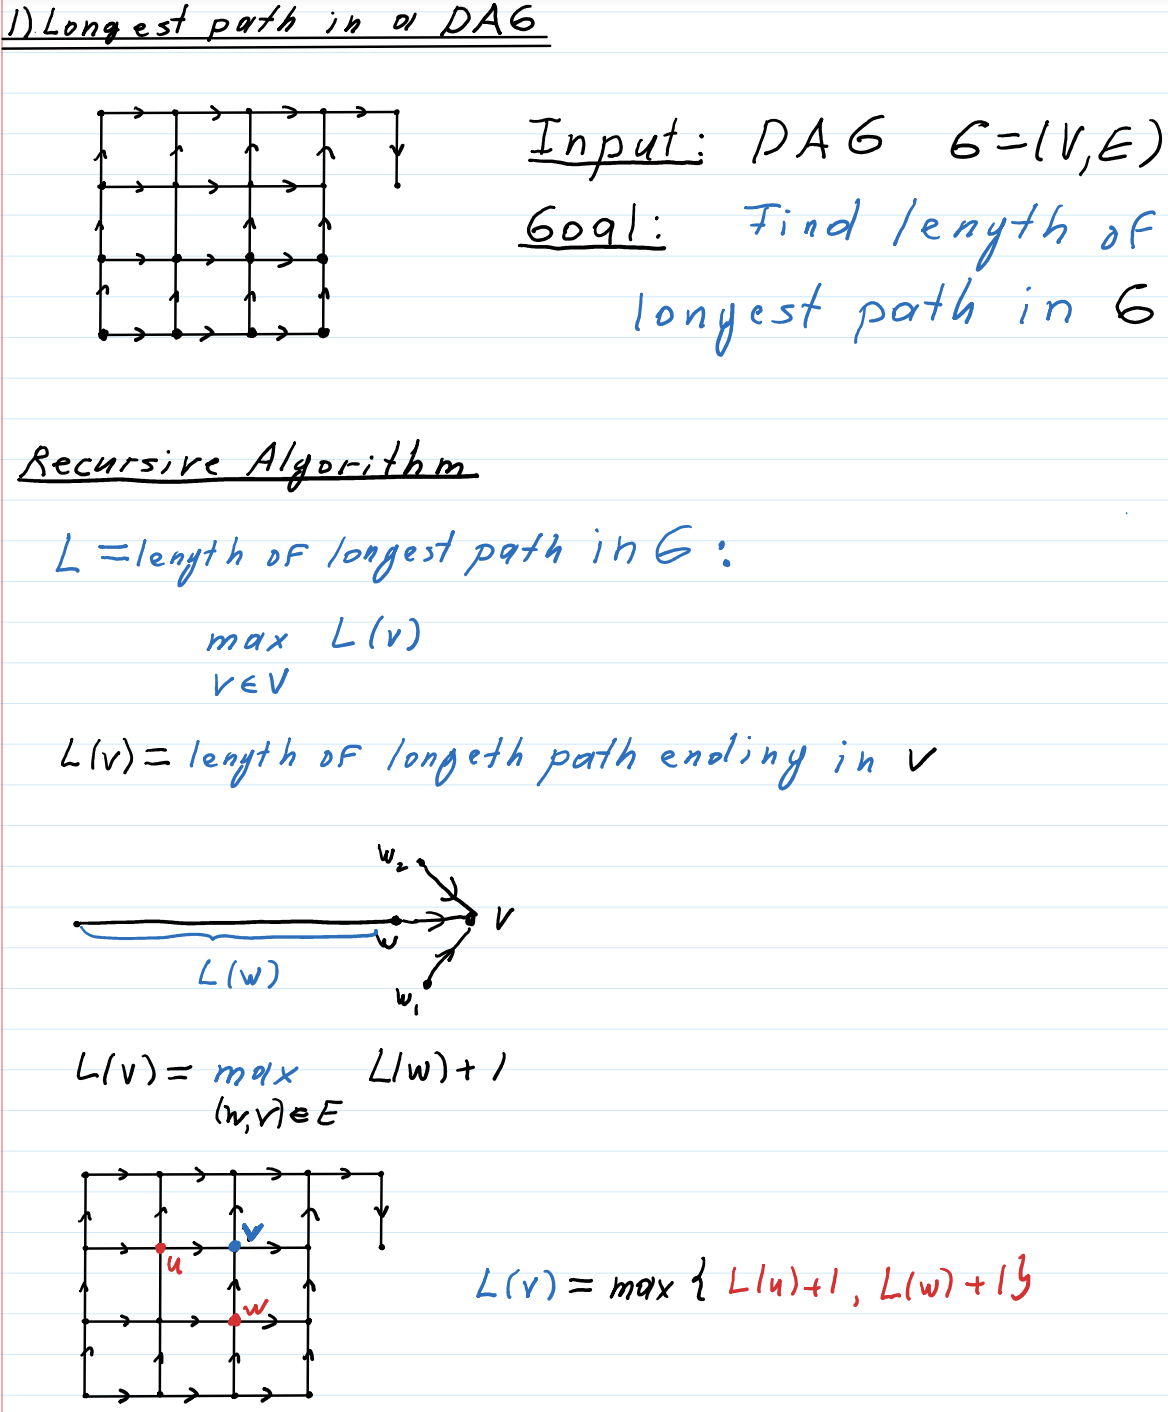 1) Longest path in a DAG
Input: DAG G=(V,E)
Goal: Find length of
longest path in G
Recursive Algorithm
L = length of longest path in G :
max L(v)
v∈V
L(v) = length of longeth path ending in v
w₂
v
w
L(w)
w₁
L(v) = max L(w)+1
(w,v)∈E
v
u
w
L(v) = max { L(u)+1, L(w)+1}